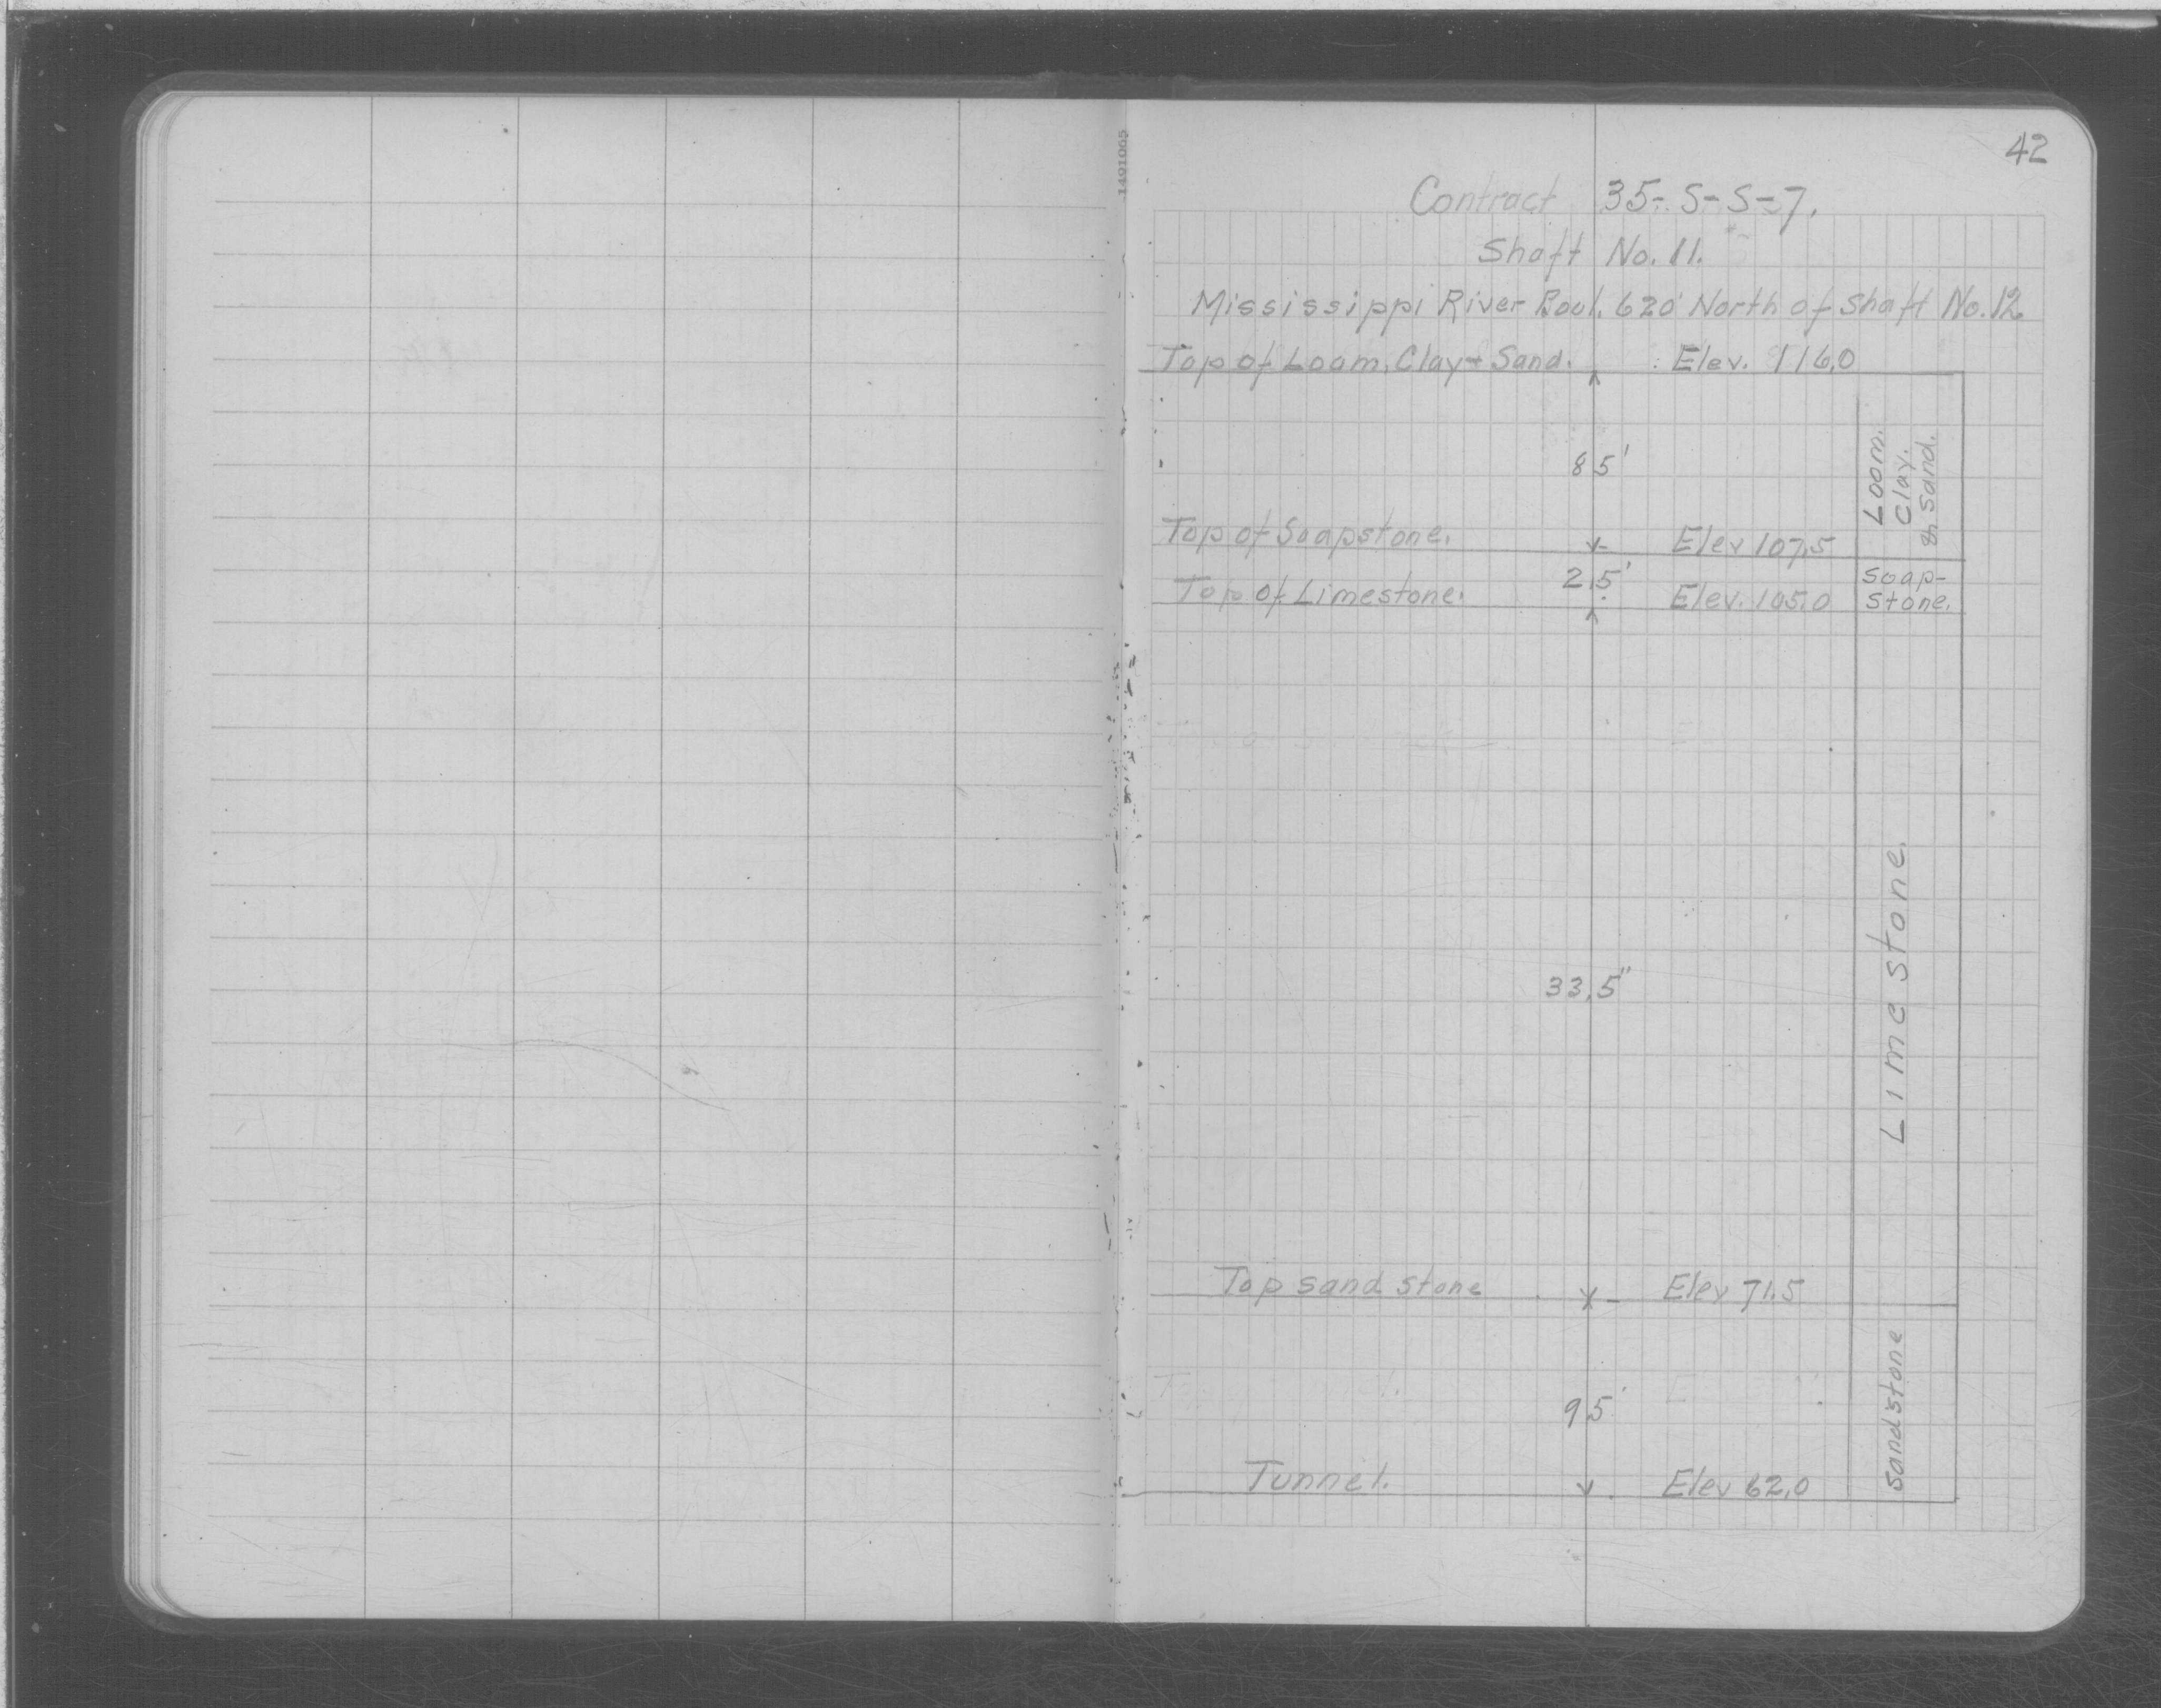 42
1491065
Contract 35-S-S-7.
Shaft No. 11.
Mississippi River Boul. 620' North of Shaft No. 12
Top of Loam, Clay + Sand. Elev. 116.0
8.5'
Loom.
Clay.
& Sand.
Top of Soapstone. Elev 107.5
2.5'
Soap-
stone.
Top of Limestone. Elev. 105.0
33.5"
Limestone.
Top sand stone Elev 71.5
9.5'
Sandstone
Tunnel. Elev 62.0